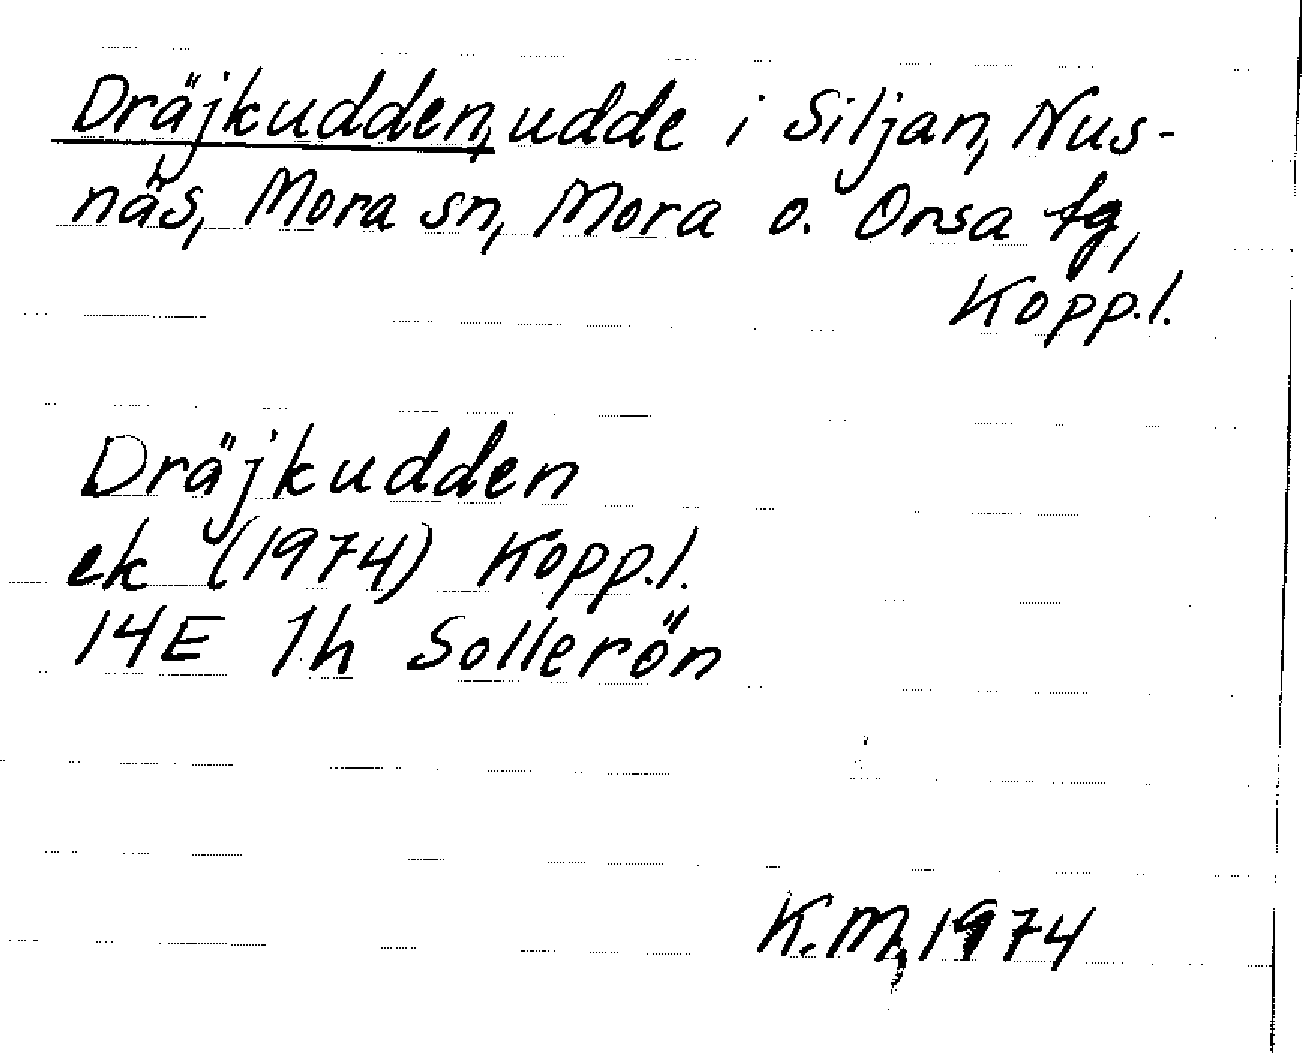 Dräjkudden, udde i Siljan, Nus-
näs, Mora sn, Mora o. Orsa tg,
Kopp.l.
Dräjkudden
ek (1974) Kopp.l.
14E 1h Sollerön
K.M, 1974